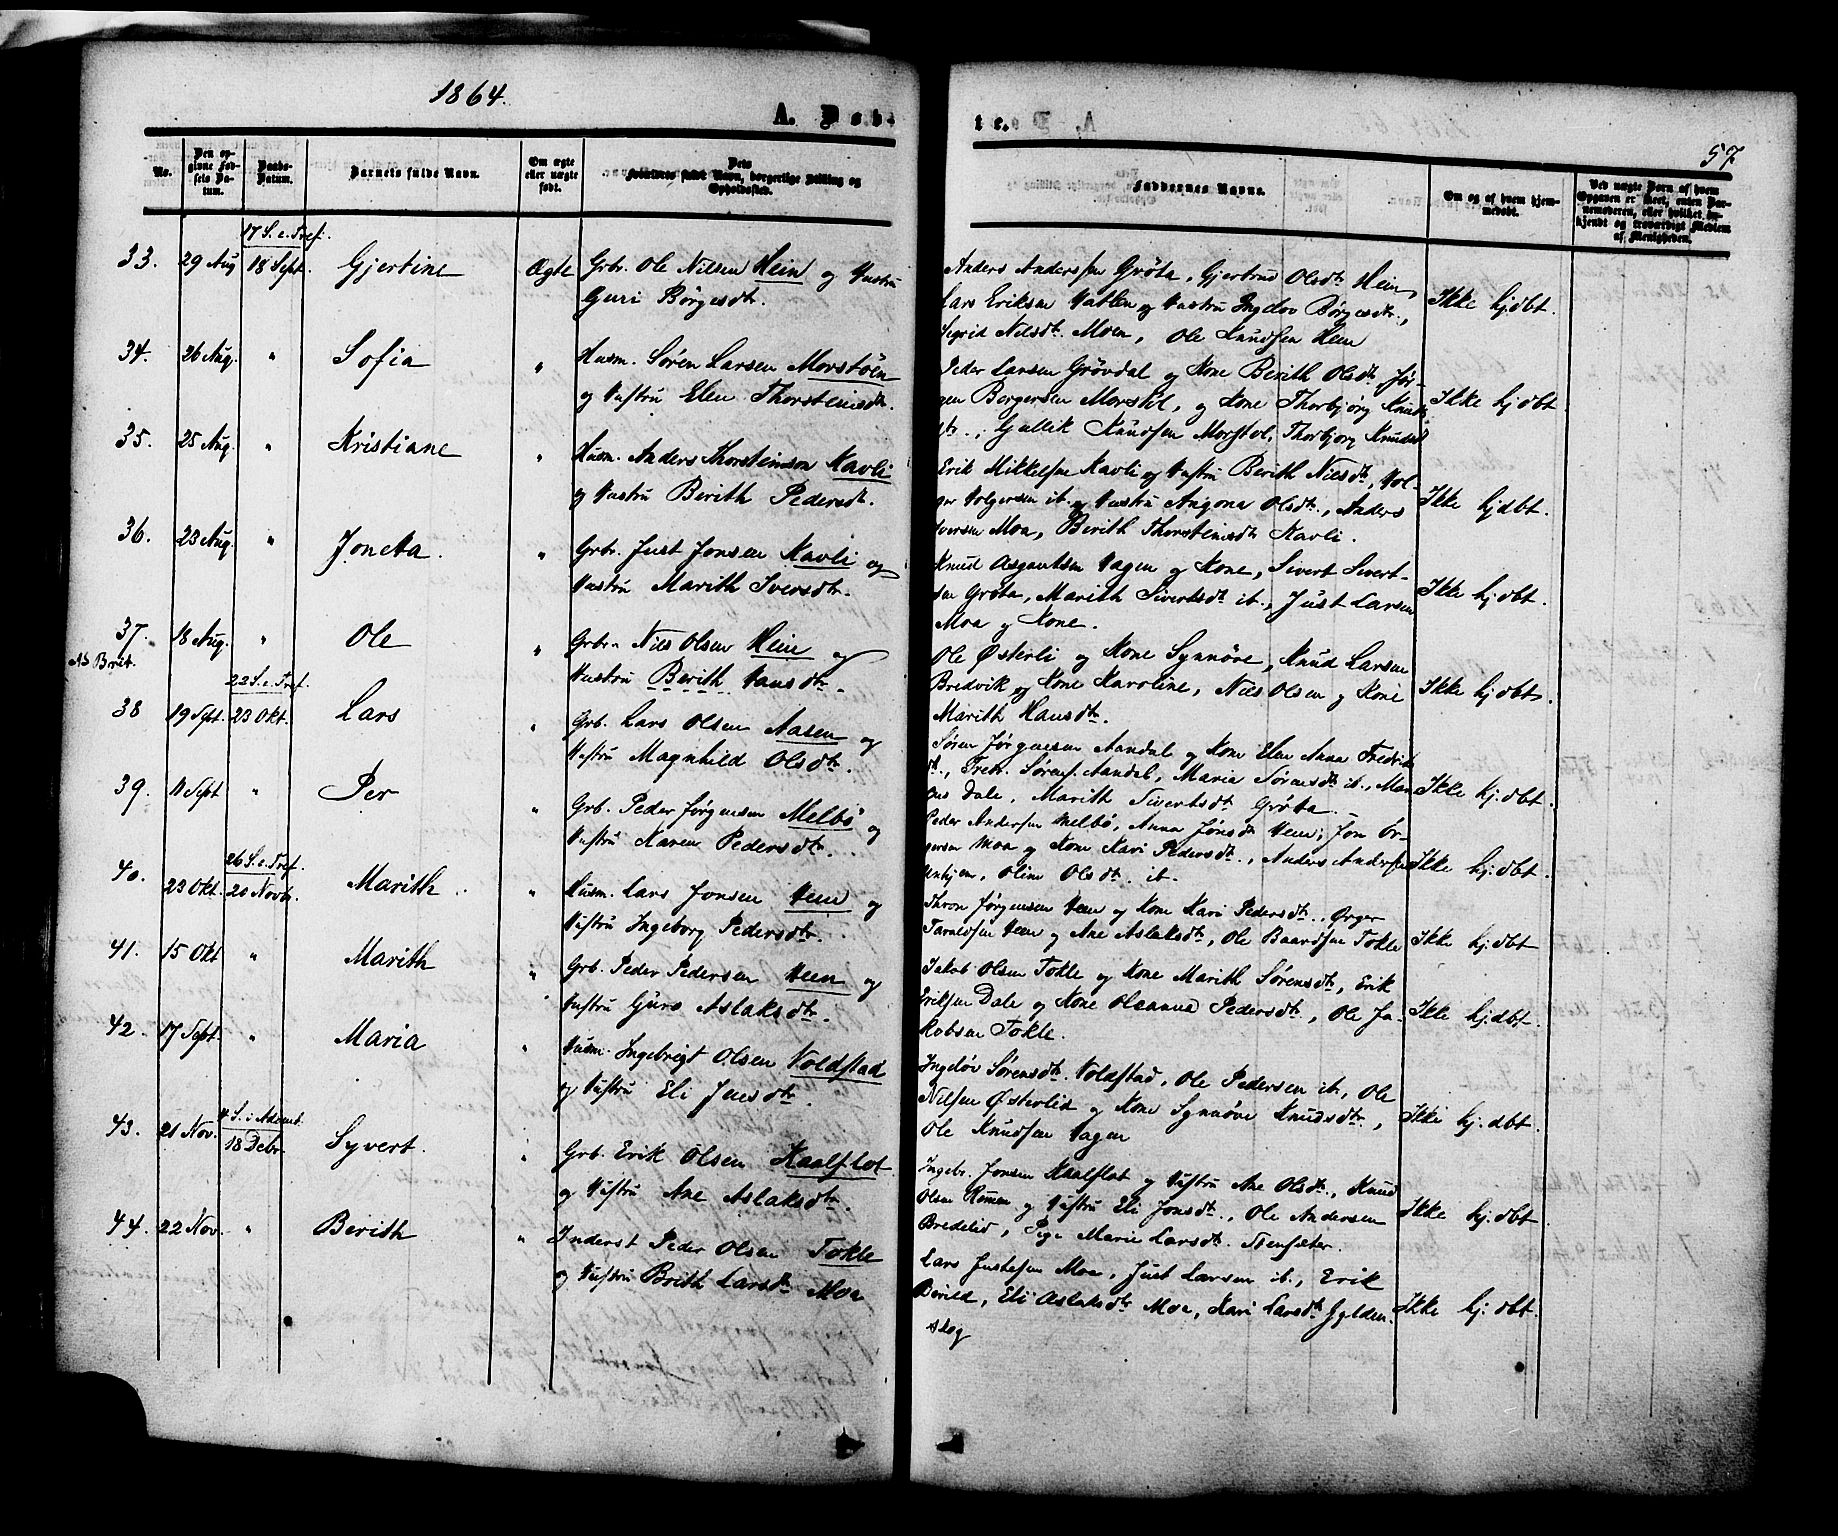 1864.
A. Døb-
te.
57
No.
Den op-
givne Fød-
sels Da-
tum.
Daabs-
Datum.
Barnets fulde Navn.
Om ægte
eller uægte
født.
Dets
Forældres fulde Navn, borgerlige Stilling og
Opholdssted.
Faddernes Navne.
Om og af hvem hjem-
medøbt.
Ved uægte Børn af hvem
Opgaven er skeet, enten Bar-
nemoderen, eller hvilket be-
kjendt og troværdigt Medlem
af Menigheden.
33. 29 Aug 17 S. e. Tref. 18 Sept. Gjertine Ægte
Grbr. Ole Nilsen Hein og Hustru
Guri Børgesdtr.
Anders Andersen Grøta, Gjertrud Olsdtr Hein,
Lars Eriksen Hatlen og Hustru Ingelov Børgesdtr.,
Sigrid Nilsdtr Moen, Ole Knudsen Hein
Ikke hj.dbt.
34. 26 Aug. " Sofia "
Husm. Søren Larsen Morstøen
og Hustru Elen Thorsteinsdtr.
Peder Larsen Grøvdal og Kone Berith Olsdtr. Jør-
gen Borgersen Morstøl, og Kone Thorbjørg Knuds
dtr., Gullik Knudsen Morstøl, Thorbjørg Knudsd
Ikke hj.dbt.
35. 25 Aug. " Kristiane "
Husm. Anders Thorsteinson Kavli
og Hustru Berith Pedersdtr.
Erik Mikkelsen Kavli og Hustru Berith Nilsdtr, Hol-
ger Holgersen ib. og Hustru Angona Olsdtr., Anders
Iversen Moa, Berith Thorsteinsdtr Kavli.
Ikke hj.dbt.
36. 23 Aug. " Joneta. "
Grbr. Just Jonsen Kavli og
Hustru Marith Iversdtr.
Knud Asgautsen Hagen og Kone, Sivert Sivert-
sen Grøta, Marith Sivertsdtr ib., Just Larsen
Moa og Kone.
Ikke hj.dbt.
37. 18 Aug. " Ole "
Grbr. Nils Olsen Hein og
Hustru Berith Hansdtr.
Ole Østerli og Kone Synnøve, Knud Larsen
Bredvik og Kone Karoline, Nils Olsen og Kone
Marith Hansdtr.
Ikke hj.dbt.
38 19 Sept. 22 S. e. Tref. 23 Okt. Lars "
Grb. Lars Olsen Aasen og
Hustru Magnhild Olsdtr.
Søren Jørgensen Aandal og Kone Elen Anna Fredrik
dtr., Fredr. Sørens. Aandal, Maria Sørensdtr ib., Man
Dale, Marith Sivertsdtr Grøta.
Ikke hj.dbt.
39. 11 Sept " Per "
Grb. Peder Jørgensen Melbø og
Hustru Karen Pedersdtr.
Peder Andersen Melbø, Anna Jønsdtr Hem, Jon Ør-
gersen Moa og Kone Kari Pedersdtr., Anders Andersen
Oline Olsdtr. ib.
Ikke hj.dbt.
40. 23 Okt. 26 S. e. Tref. 20 Novb. Marith. "
Husm. Lars Jonsen Hem og
Hustru Ingeborg Pedersdtr.
Thron Jørgensen Hem og Kone Kari Pedersdtr., Ørger
Taraldsen Hem og Ane Aslaksdtr, Ole Baardsen Tokle
Ikke hj.dbt
41. 15 Okt " Marith "
Grb. Peder Pedersen Hem og
Hustru Guro Aslaksdtr.
Jakob Olsen Tokle og Kone Marith Sørensdtr, Erik
Eriksen Dale og Kone Oleanna Pedersdtr, Ole Ja-
kobsen Tokle.
Ikke hj.dbt.
42. 17 Sept. " Maria "
Husm. Ingebrigt Olsen Voldstad
og Hustru Eli Jensdtr.
Ingeløv Sørensdtr. Voldstad, Ole Pedersen ib., Ole
Nilsen Østerlid og Kone Synnøve Knudsdtr.,
Ole Knudsen Hagen
Ikke hj.dbt.
43. 21 Nov. 4 S. i Advent. 18 Debr. Syvert. "
Grb. Erik Olsen Kaalflot
og Hustru Ane Aslaksdtr.
Ingebr. Jonsen Kaalflot og Hustru Ane Olsdtr., Knud
Olsen Remen og Hustru Eli Jonsdtr., Ole Andersen
Bredelid, Pige Marie Larsdtr. Stensæter.
Ikke hj.dbt.
44. 22 Nov. " Berith "
Inderst Peder Olsen Tokle
og Hustru Brith Larsdtr Moa
Lars Justesen Moa, Just Larsen ib., Erik
Berild, Eli Aslaksdtr Moa, Kari Larsdtr Gylden-
skog
Ikke hj.dbt.